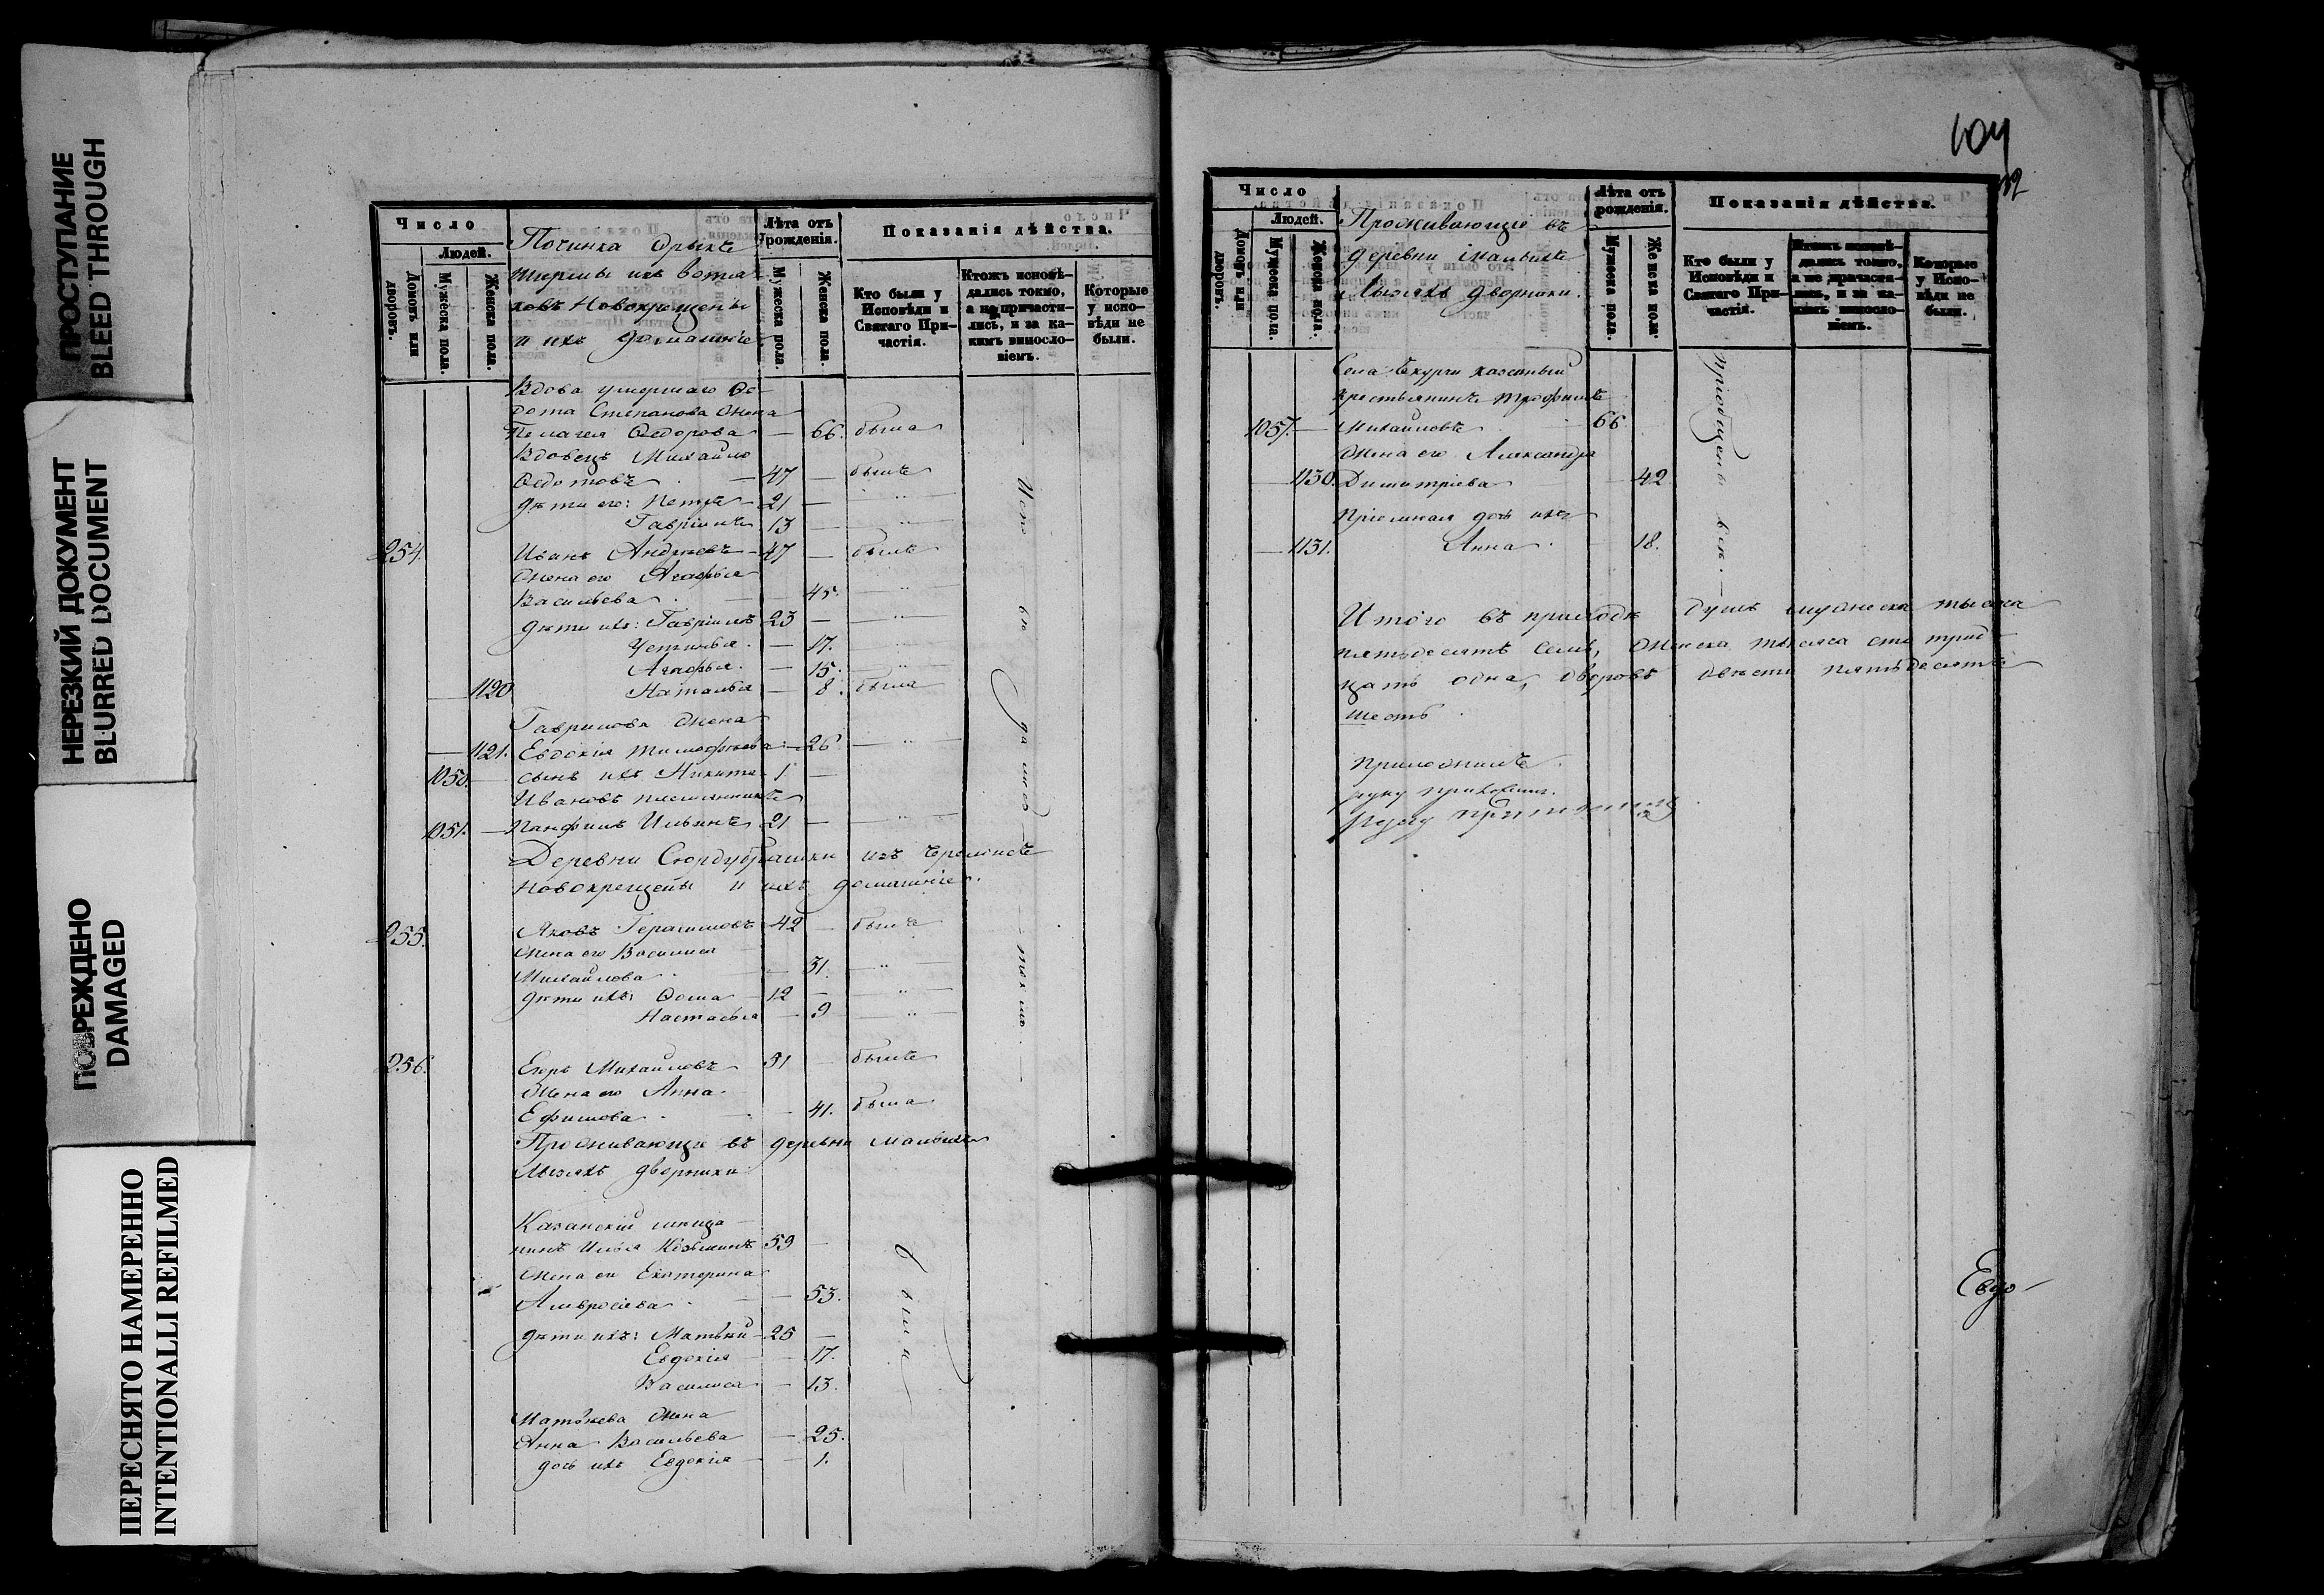 ПРОСТУПАНИЕ
BLEED THROUGH
НЕРЕЗКИЙ ДОКУМЕНТ
BLURRED DOCUMENT
ПОВРЕЖДЕНО
DAMAGED
ПЕРЕСНЯТО НАМЕРЕННО
INTENTIONALLI REFILMED
Число
Людей.
Домовъ или дворовъ.
Мужеска пола.
Женска пола.
Починка
из вотя-
ковъ Новокрещены
и ихъ домашніе
Лѣта отъ рожденія.
Мужеска пола.
Женска пола.
Показанія дѣйства.
Кто были у Исповѣди и Святаго Причастія.
Ктожъ исповѣ-
дались токмо,
а не причасти-
лись, и за ка-
кимъ виносло-
віемъ.
Которые у испо-
вѣди не были.
Вдова умершаго Ѳе-
дота Степанова жена
Пелагея Ѳедорова — 66. была
Вдовецъ Михайло
Ѳедотовъ — 47 — былъ
дѣти его: Петръ — 21 — "
Гавріилъ 13 — "
254. Иванъ Андреевъ — 47 — былъ
жена его Агафья
Васильева — 45. "
дѣти ихъ: Гавріилъ 23 — "
Устинья — 17. "
Агафья — 15. "
— 1120 Наталья — 8. была
Гаврилова жена
— 1121. Евдокія Тимофѣева — 26 "
1050. — сынъ ихъ Никита 1 —
Ивановъ племянникъ
1051. — Панфилъ Ильинъ 21 — "
Деревни изъ
Новокрещены и ихъ домашніе.
255. Яковъ Герасимовъ 42 — былъ
жена его Василиса
Михайлова — 31. "
дѣти ихъ: Ѳома 12 — "
Настасья — 9 "
256. Егоръ Михайловъ 51 — былъ
жена его Анна
Ефимова — 41. была
Проживающіе въ деревни
дворники
Казанскій мѣща-
нинъ Илья Козьминъ 59 —
жена его Екатерина
Амвросіева — 53.
дѣти ихъ: Матвѣй 25 —
Евдокія — 17.
Василиса — 13.
Матвѣева жена
Анна Васильева — 25.
дочь ихъ Евдокія — 1.
были
104
Число
Людей.
Домовъ или дворовъ.
Мужеска пола.
Женска пола.
Проживающіе въ
деревни
дворники.
Лѣта отъ рожденія.
Мужеска пола.
Женска пола.
Показанія дѣйства.
Кто были у Исповѣди и Святаго При-
частія.
Ктожъ исповѣ-
дались токмо,
а не причасти-
лись, и за ка-
кимъ винослo-
віемъ.
Которые у Испо-
вѣди не были.
Села казенный
крестьянинъ Трофимъ
1057. — Михайловъ 66
жена его Александра
— 1130. Димитріева 42
Пріемная дочь ихъ
— 1131. Анна 18.
Итого въ приходѣ душъ мужеска тысяча
пятьдесятъ семь, женска тысяча сто трид-
цать одна, дворовъ двѣсти пятьдесятъ
шесть.
Евдо-